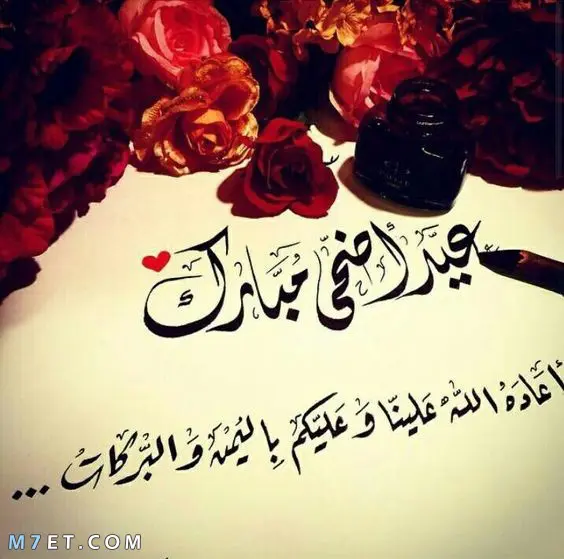 عيد أضحى مبارك
أعاده الله علينا و عليكم باليمن والبركات ...
M7ET.COM